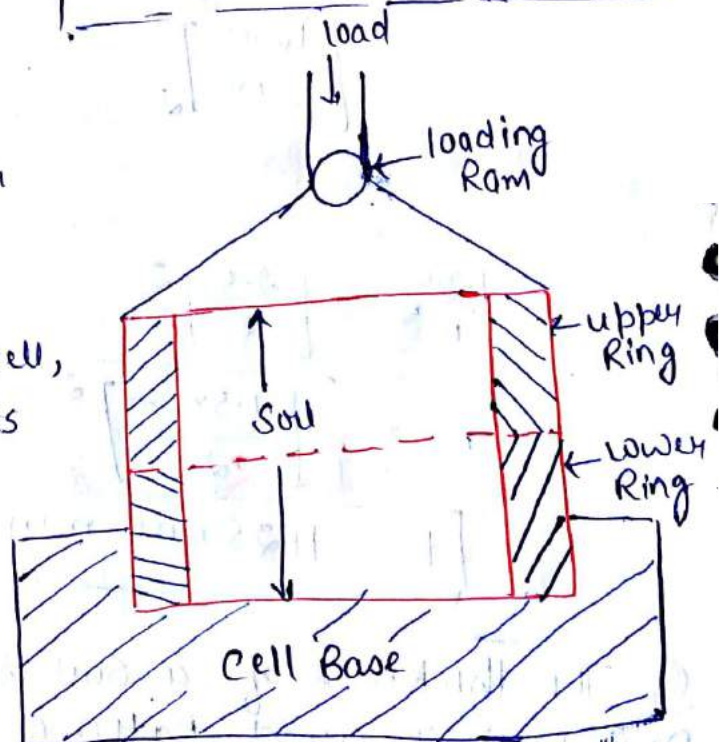 load
loading
Ram
upper
Ring
ell,
s
Soil
Lower
Ring
Cell Base